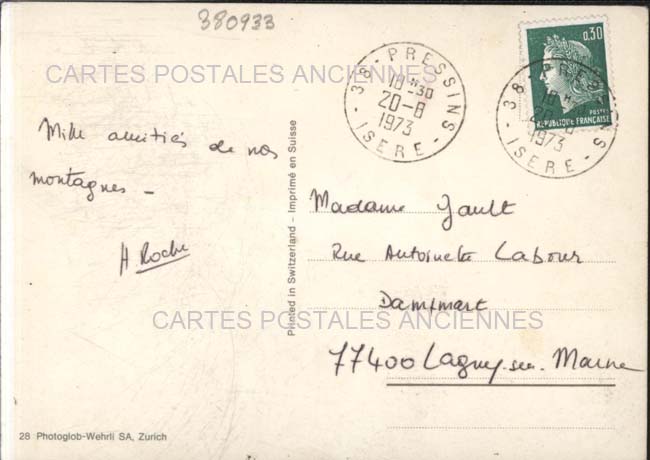 380933
CARTES POSTALES ANCIENNES
0,30
POSTES
REPUBLIQUE FRANÇAISE
38 - PRESSINS
10 H 30
20-8
1973
ISERE
38 - PRESSINS
10 H
20-8
1973
ISERE
Mille amitiés de nos
montagnes -
H Roche
Printed in Switzerland - Imprimé en Suisse
Madame Gault
Rue Antoinette Labour
Dampmart
77400 Lagny-sur-Marne
CARTES POSTALES ANCIENNES
28 Photoglob-Wehrli SA, Zurich